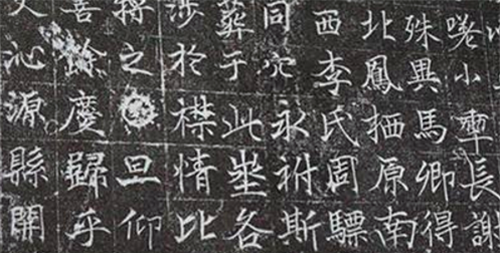 小長謝
殊異馬卿得
北鳳栖原南
西李氏周驃
同穴永祔斯
葬于此塋各
涉於襟情比
之旦仰
善餘慶歸乎
沁源縣開